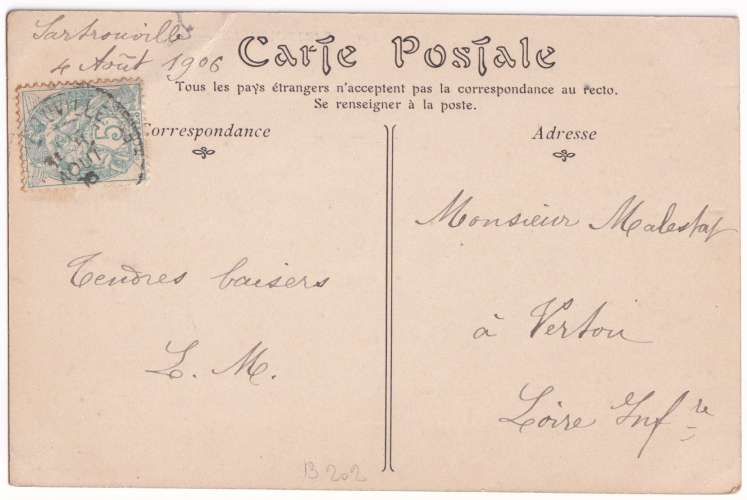 Sartrouville
4 Août 1906
Carte Postale
Tous les pays étrangers n'acceptent pas la correspondance au recto.
Se renseigner à la poste.
Correspondance
Adresse
5
AOUT
Tendres baisers
L. M.
Monsieur Malestat
à Vertou
Loire Inf re
B 202